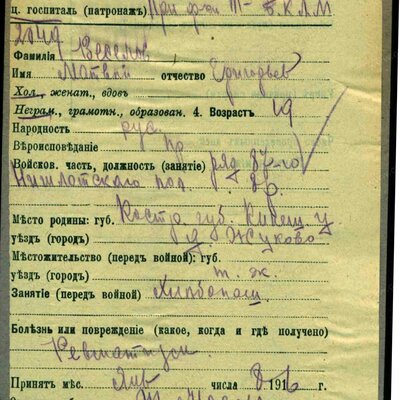 ц. госпиталь (патронажъ) При ф-ой
2049
Фамилія Веселов
Имя Матвѣй отчество Григорьев
Хол., женат., вдовъ
Неграм., грамотн., образован. 4. Возрастъ 19
Народность рус.
Вѣроисповѣданіе пр.
Войсков. часть, должность (занятіе) ряд 87-го
Нишлотского пол.
Мѣсто родины: губ. Костр. губ. Кинеш. у.
уѣздъ (городъ) д Жуково
Мѣстожительство (передъ войной): губ.
уѣздъ (городъ) т. ж.
Занятіе (передъ войной) Хлѣбопаш
Болѣзнь или поврежденіе (какое, когда и гдѣ получено)
Ревматизм
Принятъ мѣс. Янв числа 8 1916 г.